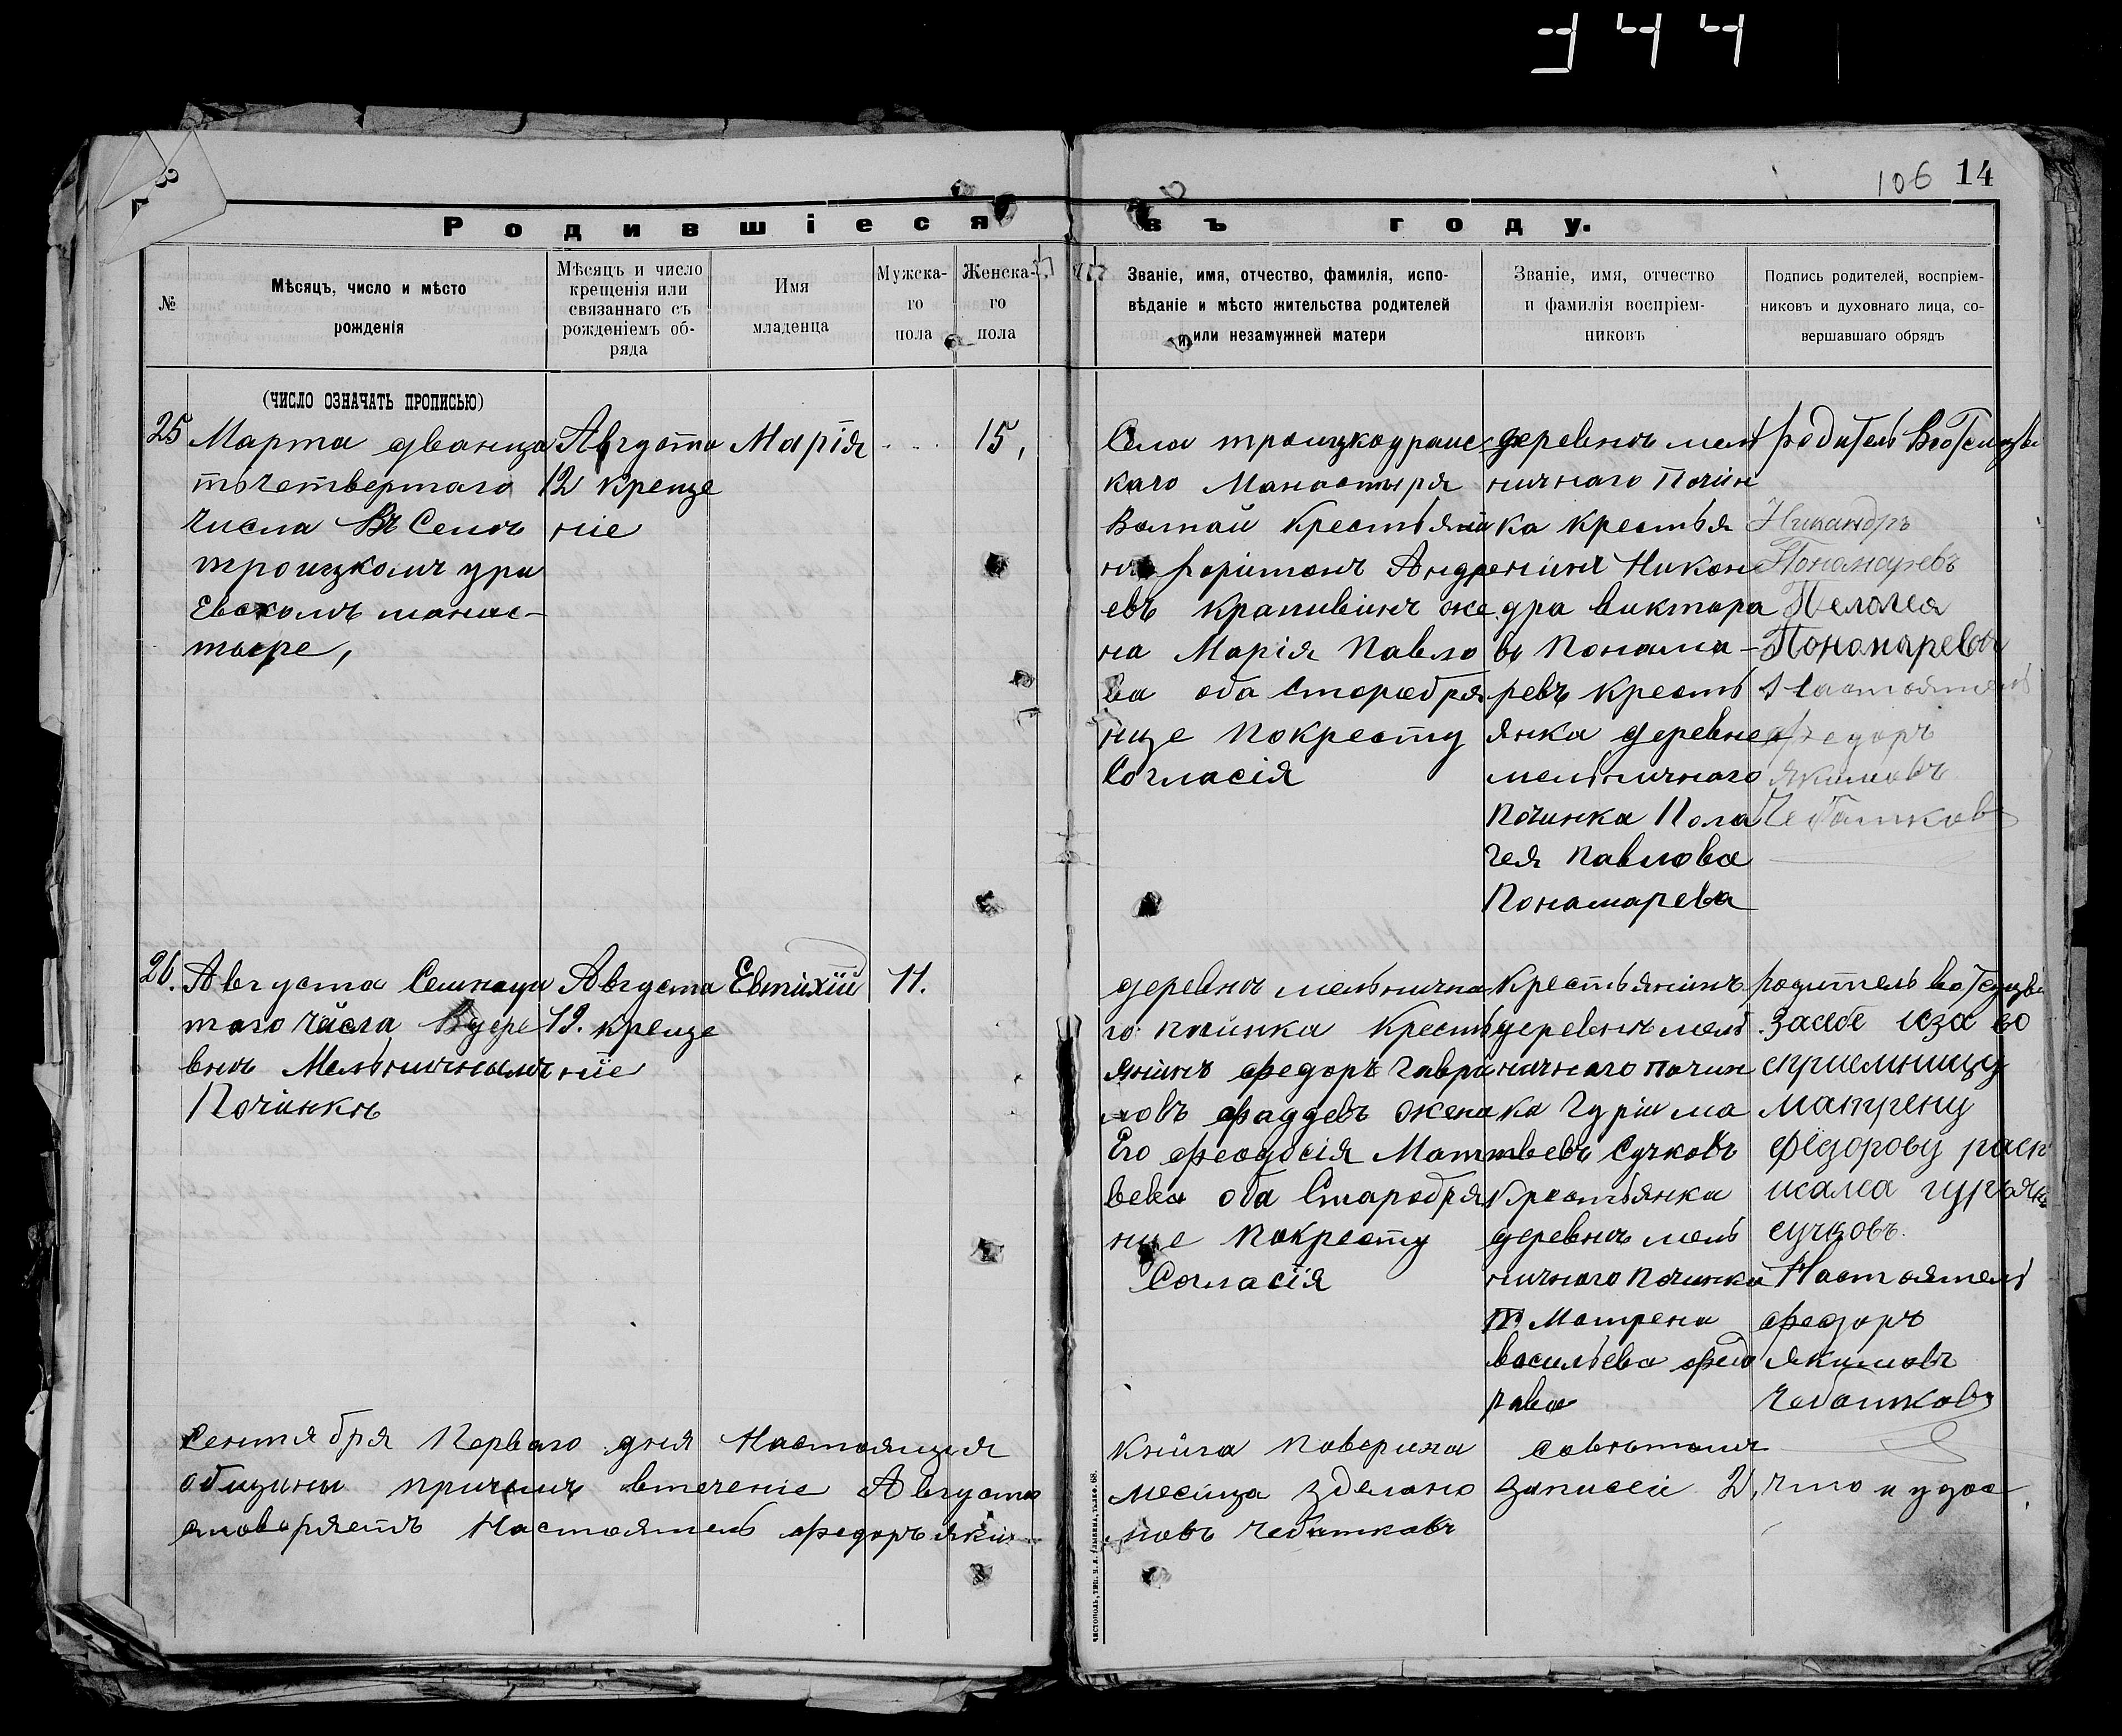 344
106 14
Родившіеся въ году.
№
Мѣсяцъ, число и мѣсто
рожденія
Мѣсяцъ и число
крещенія или
связаннаго съ
рожденіемъ об-
ряда
Имя
младенца
Мужска-
го
пола
Женска-
го
пола
Званіе, имя, отчество, фамилія, испо-
вѣданіе и мѣсто жительства родителей
или незамужней матери
Званіе, имя, отчество
и фамилія воспріем-
никовъ
Подпись родителей, воспріем-
никовъ и духовнаго лица, со-
вершавшаго обрядъ
(ЧИСЛО ОЗНАЧАТЬ ПРОПИСЬЮ)
25
Марта дванца
тьчетвертаго
числа Въ Селѣ
троицкомъ ура
Евскомъ монас-
тыре,
Августа
12 креще
ніе
Марія
15,
Села троицкоураис
каго Манастыря
Волпай крестьяни
нъ Харитонъ Андре
евъ Крапивинъ же
на Марія Павло
ва оба старобря
нце Покресту
Согласія
деревнѣ мел
ничнаго Почин
ка крестья
нинъ Никон
дра виктора
въ Понома-
ревъ кресть
янка деревне
мельничнаго
Починка Пола
гея Павлова
Пономарева
родитель
Никандръ
Пономаревъ
Пелагея
Пономарева
Настоятель
Федоръ
Якимовъ
Чебатков
26.
Августа Семнаца
таго числа Вдере
внѣ Мельничнымъ
Починкѣ
Августа
19. креще
ніе
Евтихій
11.
деревнѣ мельнична
го починка Кресть
янинъ Федоръ Гаври
ловъ Фаддевъ жена
Его Феодосія Мат
вева оба Старобря
нце Покресту
Согласія
Крестьянинъ
деревнѣ мель
ничнаго почин
ка Гурiи ма
твѣевъ Сучковъ
Крестьянка
деревнѣ мель
ничнаго Починка
Матрена
васильева федо
рава
родитель
засебе иза во
сприемницу
матрену
Федорову расп
исалса гурьян
сучковъ.
Настоятель
Федоръ
Якимовъ
Чебатковъ
Сентября Перваго дня Настоящия Книга Поверина Советомъ
общины причемъ втечение Августа месеца зделано записеи 2, что и удос
товоряетъ Настоятель Федоръ яки мовъ Чебатковъ